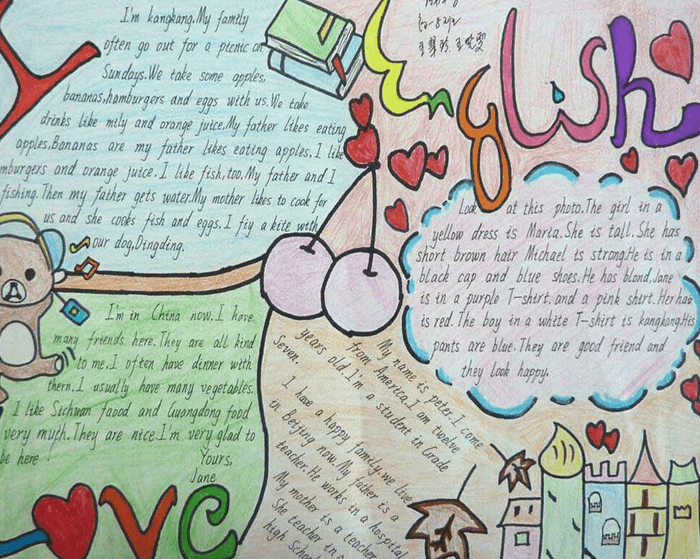 I'm kangkang.My family
often go out for a picnic on
Sundays.We take some apples,
bananas,hamburgers and eggs with us.We take
drinks like mily and orange juice.My father likes eating
apples.Bananas are my father likes eating apples.I like
mburgers and orange juice.I like fish,too.My father and I
fishing.Then my father gets water.My mother likes to cook for
us and she cooks fish and eggs.I fiy a kite with
our dog,Dingding.
English
Look at this photo.The girl in a
yellow dress is Maria.She is tall.She has
short brown hair Michael is strong.He is in a
black cap and blue shoes.He has blond.Jane
is in a purple T-shirt.and a pink shirt.Her hair
is red.The boy in a white T-shirt is kangkang.His
pants are blue.They are good friend and
they look happy.
I'm in China now.I have
many friends here.They are all kind
to me.I often have dinner with
them.I usually have many vegetables.
I like Sichuan faood and Guangdong food
very myth.They are nice.I'm very glad to
be here
Yours,
Jane
My name is peter.I come
from America.I am twelve
years old.I'm a student in Grade
Seven.
I have a happy family.we live
in Beijing now.My father is a
teacher.He works in a hospital
My mother is a teacher
She teacher in a
high School
OVE